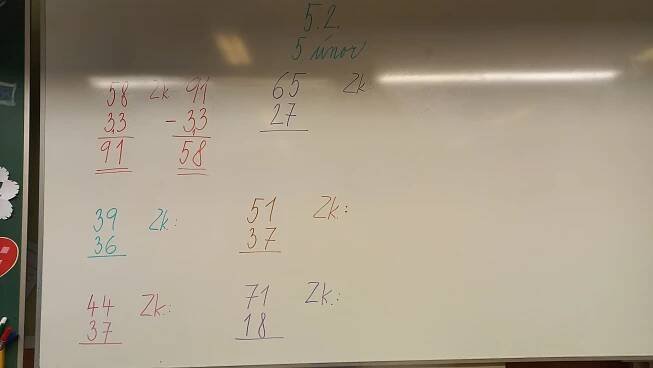 5.2.
5 únor
58 Zk 91
33 - 33
91 58
65 Zk
27
39 Zk:
36
51 Zk:
37
44 Zk:
37
71 Zk:
18